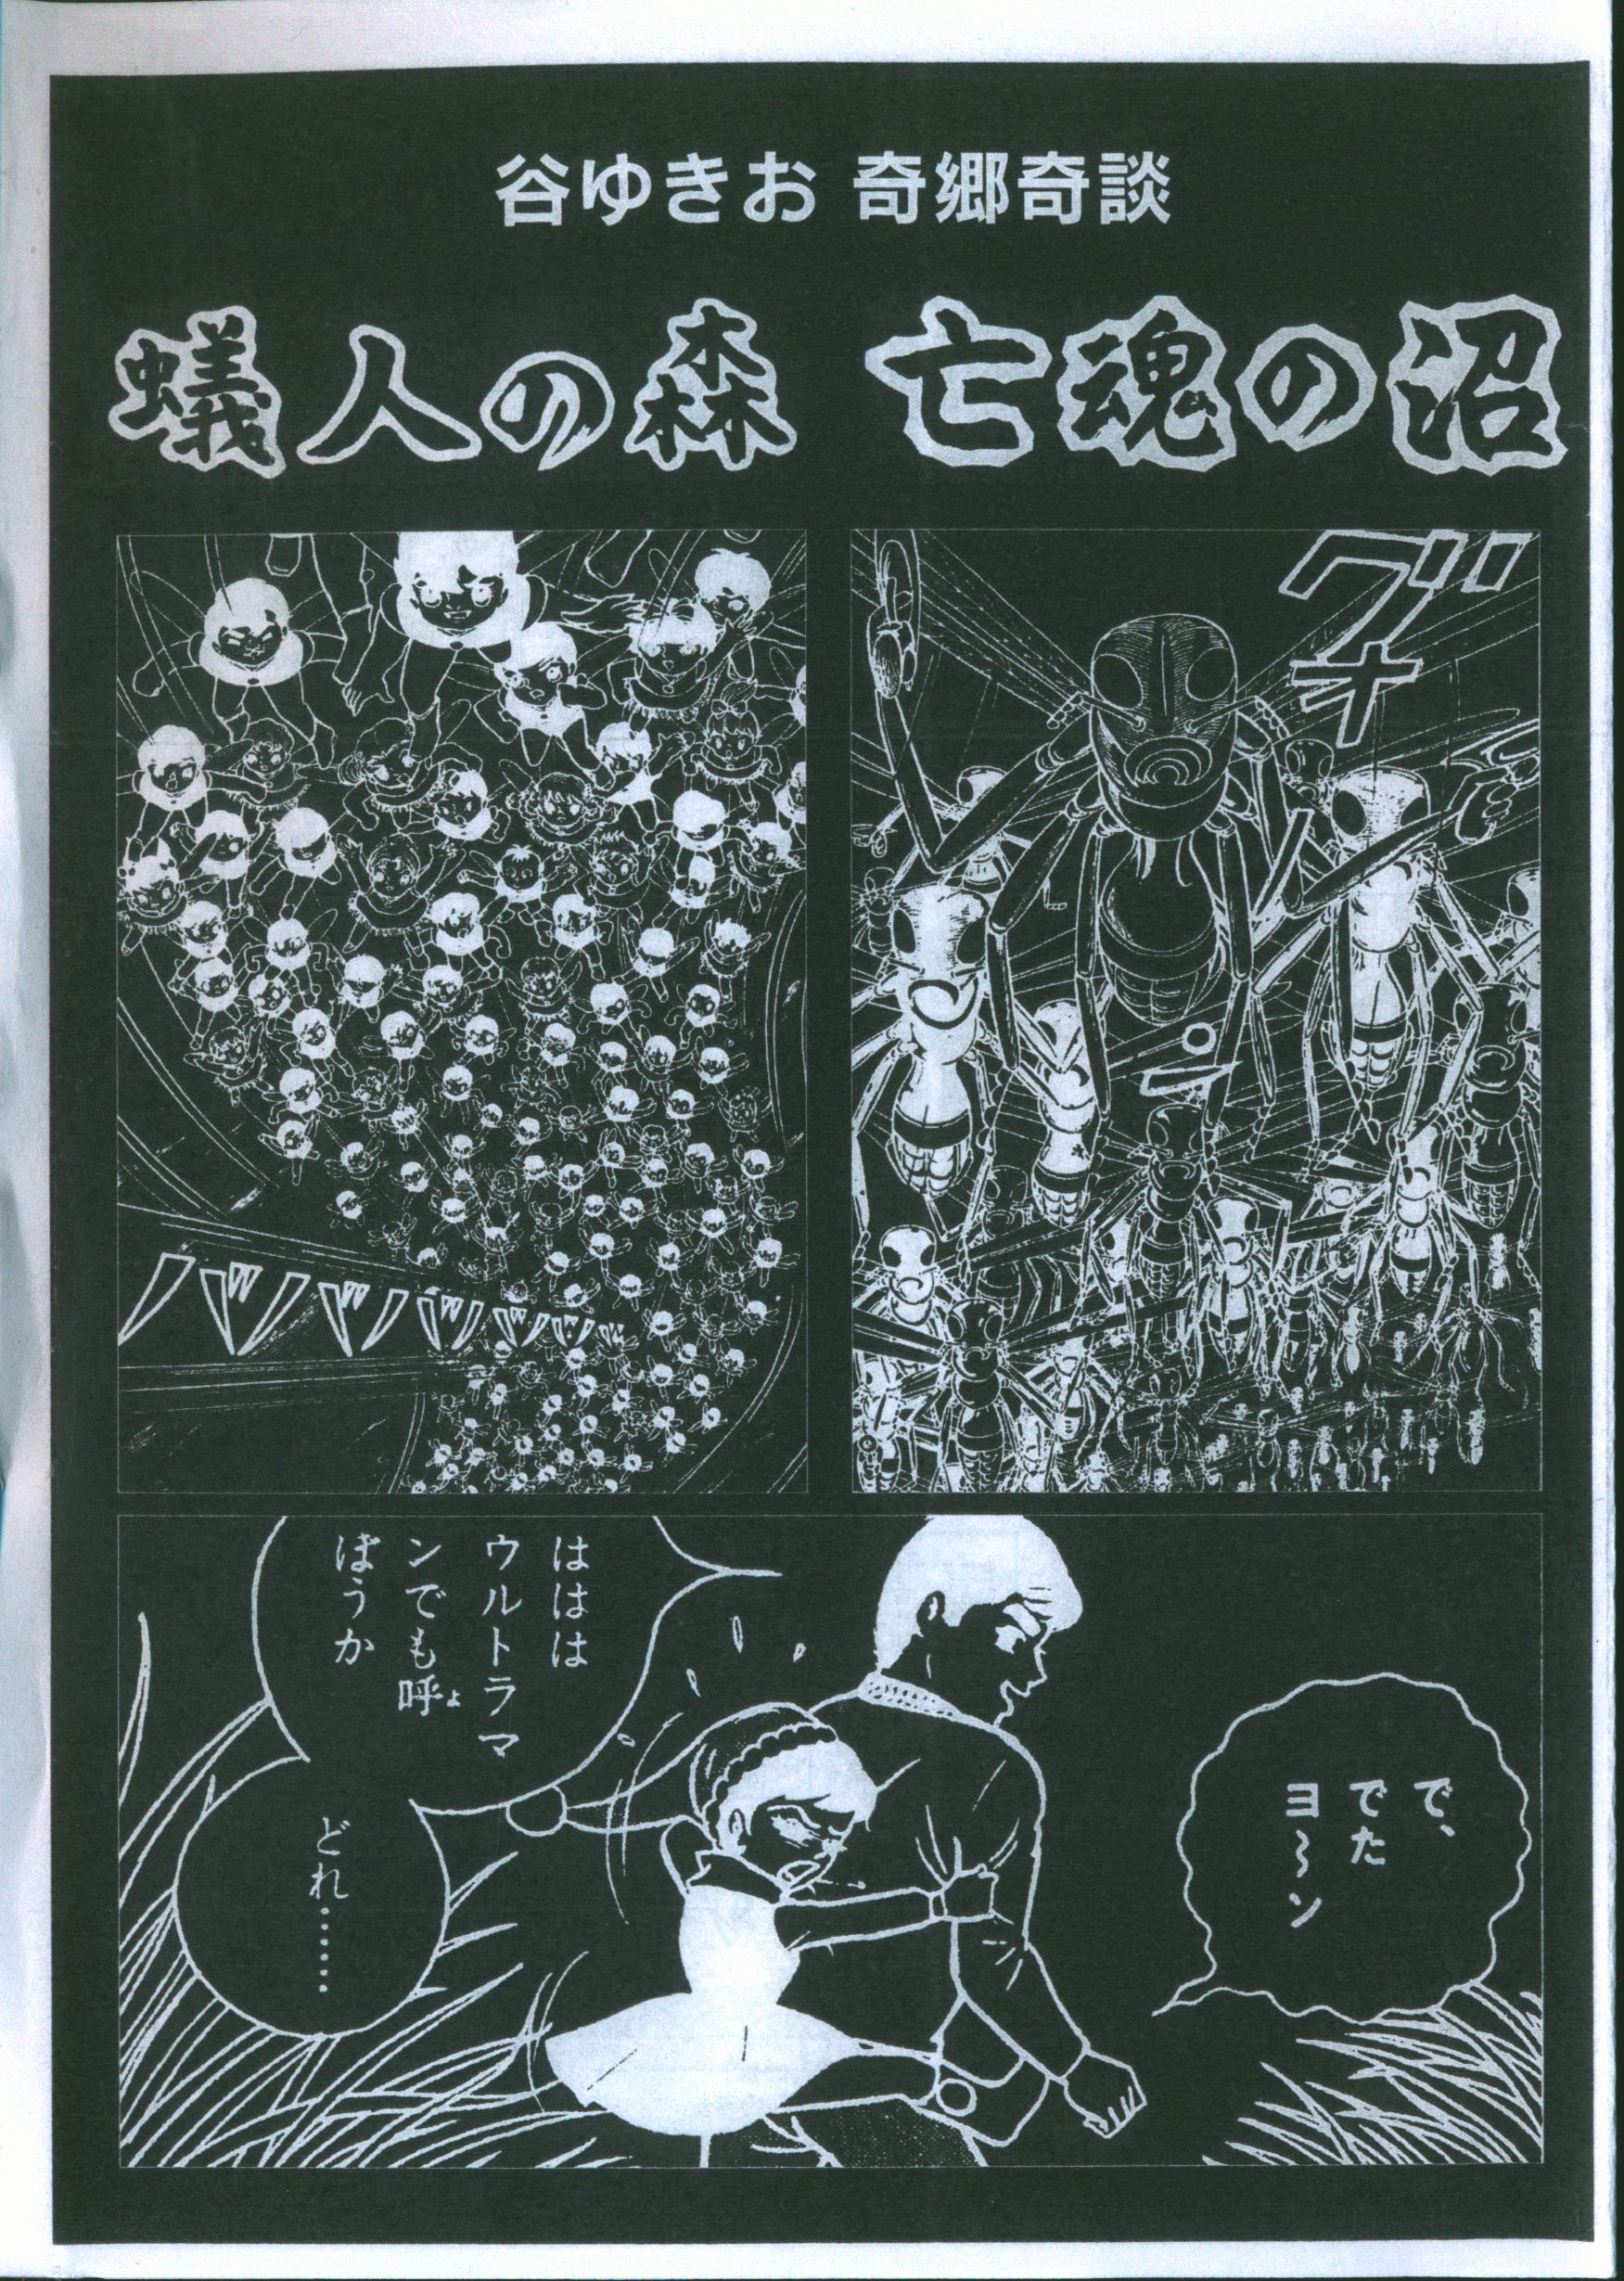 谷ゆきお 奇郷奇談
蟻人の森 亡魂の沼
グオーン
ババババババ
で、
でた
ヨ〜ン
ははは
ウルトラマ
ンでも呼
よ
ぼうか
どれ……